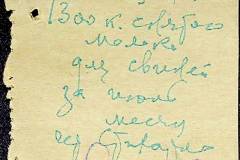 1300 к. снятого
молока
для свиней
за июль
месяц